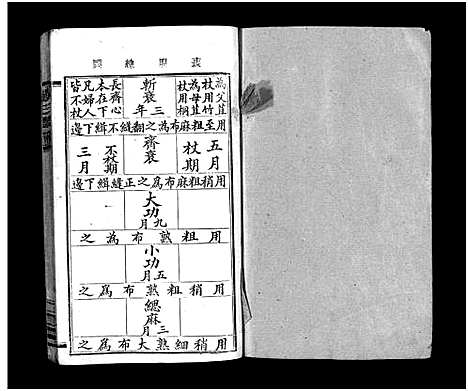 喪服總圖
為父苴
杖用竹
為母苴
杖用桐
斬衰三年
長齊心
本在下
凡婦人
皆不杖
用至粗麻布為之翻縫不緝下邊
五月
杖期
齊衰
不杖期
三月
用稍粗麻布為之正縫緝下邊
大功九月
用粗熟布為之
小功五月
用稍粗熟布為之
緦麻三月
用稍細熟大布為之